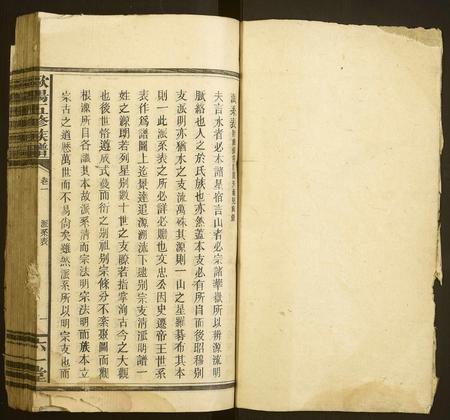 派系表
夫言水者必本諸星宿言山者必宗諸華嶽所以辨源流明
脈絡也人之於氏族也亦然蓋本支必有所自而後昭穆别
支派明亦猶水之支流萬殊其源則一山之星羅碁布其本
則一此派系表之所必詳必贍也文忠公因史遷帝王世系
表作爲譜圖上迄景達追源溯流下逮别宗支清派明譜一
姓之源明若列星别數十世之支瞭若指掌洵古今之大觀
也後世脩遵成式蔓而衍之别祖别宗條分不紊聚圖而觀
根源所自各識其本故派系清而宗法明宗法明而族本立
宗古之道歷萬世而不易尚矣雖然派系所以明宗支也而
歐陽五修族譜
卷二
派系表
一
六一堂